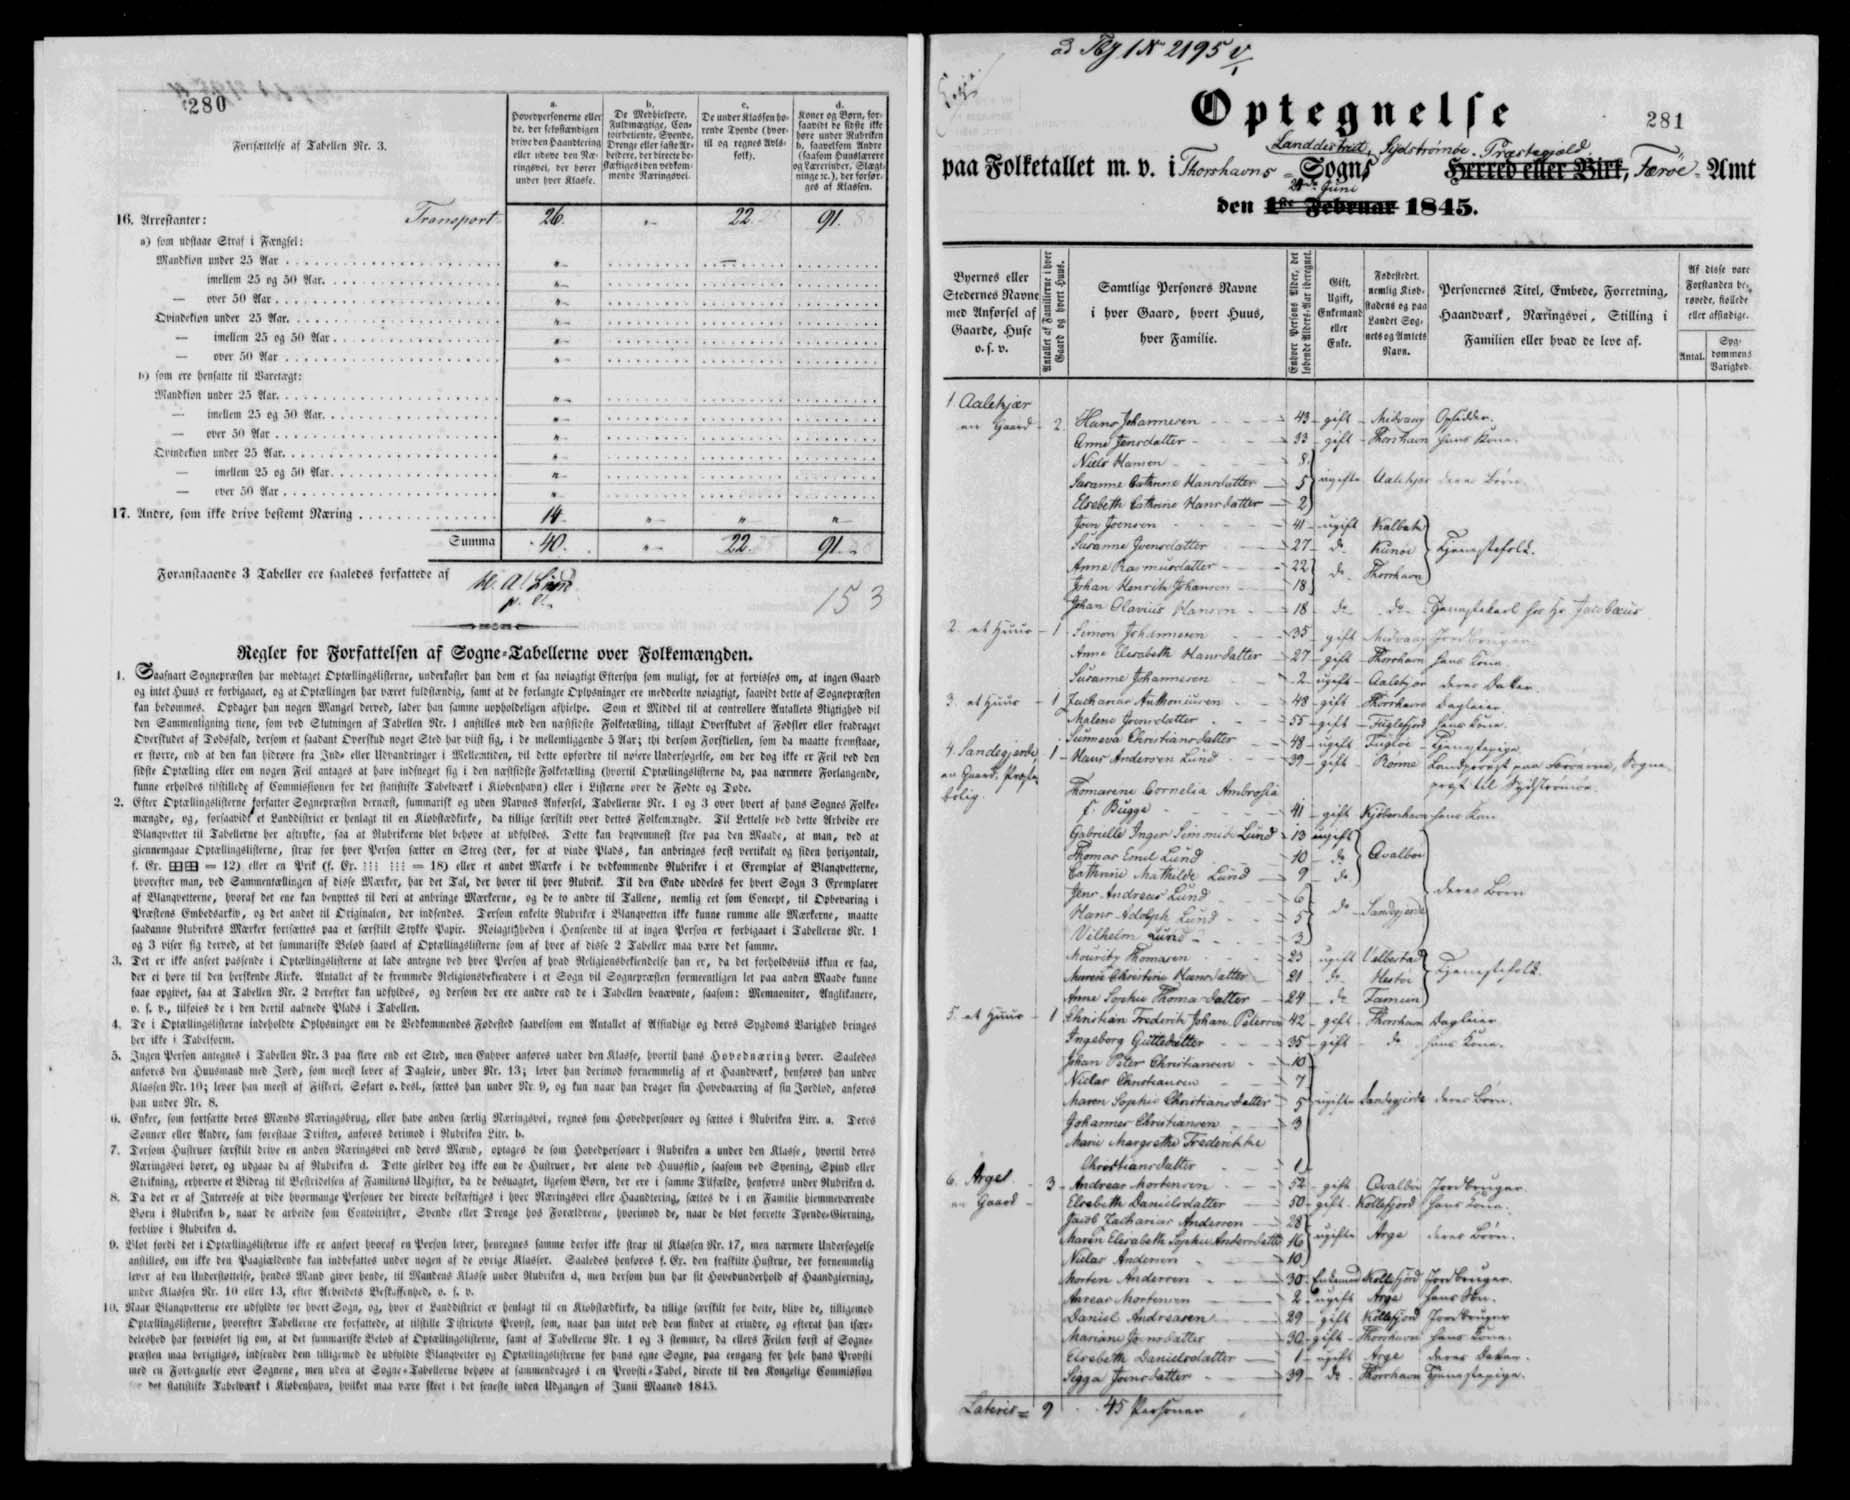 280
Fortsættelse af Tabellen Nr. 3.
a.
Hovedpersonerne eller
de, der selvstændigen
drive den Haandtering
eller udøve den Næ-
ringsvei, der hører
under hver Klasse.
b.
De Medhjelpere,
Fuldmægtige, Con-
toirbetjente, Svende,
Drenge eller faste Ar-
beidere, der directe be-
skæftiges i den vedkom-
mende Næringsvei.
c.
De under Klassen ho-
rende Tyende (hvor-
til og regnes Avls-
folk).
d.
Koner og Børn, for-
saavidt de sidste ikke
høre under Rubriken
b, saavelsom Andre
(saasom Huuslærere
og Lærerinder, Slægt-
ninge ic.), der forsør-
ges af Klassen.
16. Arrestanter: Transport 26. " 22. 91.
a) som udstaae Straf i Fængsel:
Mandkiøn under 25 Aar "
imellem 25 og 50 Aar. "
— over 50 Aar "
Qvindekiøn under 25 Aar. "
— imellem 25 og 50 Aar "
— over 50 Aar "
b) som ere hensatte til Varetægt:
Mandkiøn under 25 Aar. "
— imellem 25 og 50 Aar. "
— over 50 Aar "
Qvindekiøn under 25 Aar. "
— imellem 25 og 50 Aar. "
— over 50 Aar "
17. Andre, som ikke drive bestemt Næring 14 " " "
Summa 40. " 22. 91.
Foranstaaende 3 Tabeller ere saaledes forfattede af
153
Regler for Forfattelsen af Sogne-Tabellerne over Folkemængden.
1. Saasnart Sognepræsten har modtaget Optællingslisterne, underkaster han dem et saa nøiagtigt Eftersyn som muligt, for at forvisses om, at ingen Gaard
og intet Huus er forbigaaet, og at Optællingen har været fuldstændig, samt at de forlangte Oplysninger ere meddeelte nøiagtigt, saavidt dette af Sognepræsten
kan bedømmes. Opdager han nogen Mangel derved, lader han samme uopholdeligen afhielpe. Som et Middel til at controllere Antallets Rigtighed vil
den Sammenligning tiene, som ved Slutningen af Tabellen Nr. 1 anstilles med den næstsidste Folketælling, tillagt Overskudet af Fødsler eller fradraget
Overskudet af Dødsfald, dersom et saadant Overskud noget Sted har viist sig, i de mellemliggende 5 Aar; thi dersom Forskiellen, som da maatte fremstaae,
er større, end at den kan hidrøre fra Ind- eller Udvandringer i Mellemtiden, vil dette opfordre til nøiere Undersøgelse, om der dog ikke er Feil ved den
sidste Optælling eller om nogen Feil antages at have indsneget sig i den næstsidste Folketælling (hvortil Optællingslisterne da, paa nærmere Forlangende,
kunne erholdes tilstillede af Commissionen for det statistiske Tabelværk i Kiøbenhavn) eller i Listerne over de Fødte og Døde.
2. Efter Optællingslisterne forfatter Sognepræsten dernæst, summarisk og uden Navnes Anførsel, Tabellerne Nr. 1 og 3 over hvert af hans Sognes Folke-
mængde, og, forsaavidt et Landdistrict er henlagt til en Kiøbstadkirke, da tillige særskilt over dettes Folkemængde. Til Lettelse ved dette Arbeide ere
Blanqvetter til Tabellerne her aftrykte, saa at Rubrikerne blot behøve at udfyldes. Dette kan beqvemmest skee paa den Maade, at man, ved at
giennemgaae Optællingslisterne, strax for hver Person sætter en Streg (der, for at vinde Plads, kan anbringes først vertikalt og siden horizontalt,
f. Ex. ⊞⊞ = 12) eller en Prik (f. Ex. ⁝⁝⁝ ⁝⁝⁝ = 18) eller et andet Mærke i de vedkommende Rubriker i et Exemplar af Blanqvetterne,
hvorefter man, ved Sammentællingen af disse Mærker, har det Tal, der hører til hver Rubrik. Til den Ende uddeles for hvert Sogn 3 Exemplarer
af Blanqvetterne, hvoraf det ene kan benyttes til deri at anbringe Mærkerne, og de to andre til Tallene, nemlig eet som Concept, til Opbevaring i
Præstens Embedsarkiv, og det andet til Originalen, der indsendes. Dersom enkelte Rubriker i Blanqvetten ikke kunne rumme alle Mærkerne, maatte
saadanne Rubrikers Mærker fortsættes paa et særskilt Stykke Papir. Nøiagtigheden i Henseende til at ingen Person er forbigaaet i Tabellerne Nr. 1
og 3 viser sig derved, at det summariske Beløb saavel af Optællingslisterne som af hver af disse 2 Tabeller maa være det samme.
3. Det er ikke anseet passende i Optællingslisterne at lade antegne ved hver Person af hvad Religionsbekiendelse han er, da det forholdsviis ikkun er faa,
der ei høre til den herskende Kirke. Antallet af de fremmede Religionsbekiendere i et Sogn vil Sognepræsten formeentligen let paa anden Maade kunne
faae opgivet, saa at Tabellen Nr. 2 derefter kan udfyldes, og dersom der ere andre end de i Tabellen benævnte, saasom: Memnoniter, Anglikanere,
o. s. v., tilføies de i den dertil aabnede Plads i Tabellen.
4. De i Optællingslisterne indeholdte Oplysninger om de Vedkommendes Fødested saavelsom om Antallet af Afsindige og deres Sygdoms Varighed bringes
her ikke i Tabelform.
5. Ingen Person antegnes i Tabellen Nr. 3 paa flere end eet Sted, men Enhver anføres under den Klasse, hvortil hans Hovednæring hører. Saaledes
anføres den Huusmand med Jord, som meest lever af Dagleie, under Nr. 13; lever han derimod fornemmelig af et Haandværk, henføres han under
Klassen Nr. 10; lever han meest af Fiskeri, Søfart o. desl., sættes han under Nr. 9, og kun naar han drager sin Hovednæring af sin Jordlod, anføres
han under Nr. 8.
6. Enker, som fortsætte deres Mænds Næringsbrug, eller have anden særlig Næringsvei, regnes som Hovedpersoner og sættes i Rubriken Litr. a. Deres
Sønner eller Andre, som forestaae Driften, anføres derimod i Rubriken Litr. b.
7. Dersom Hustruer særskilt drive en anden Næringsvei end deres Mænd, optages de som Hovedpersoner i Rubriken a under den Klasse, hvortil deres
Næringsvei hører, og udgaae da af Rubriken d. Dette gielder dog ikke om de Hustruer, der alene ved Huusflid, saasom ved Syening, Spind eller
Strikning, erhverve et Bidrag til Bestridelsen af Familiens Udgifter, da de desuagtet, ligesom Børn, der ere i samme Tilfælde, henføres under Rubriken d.
8. Da det er af Interesse at vide hvormange Personer der directe beskæftiges i hver Næringsvei eller Haandtering, sættes de i en Familie hiemmeværende
Børn i Rubriken b, naar de arbeide som Contoirister, Svende eller Drenge hos Forældrene, hvorimod de, naar de blot forrette Tyende-Gierning,
forblive i Rubriken d.
9. Blot fordi det i Optællingslisterne ikke er anført hvoraf en Person lever, henregnes samme derfor ikke strax til Klassen Nr. 17, men nærmere Undersøgelse
anstilles, om ikke den Paagieldende kan indbefattes under nogen af de øvrige Klasser. Saaledes henføres f. Ex. den fraskilte Hustrue, der fornemmelig
lever af den Understøttelse, hendes Mand giver hende, til Mandens Klasse under Rubriken d, men dersom hun har sit Hovedunderhold af Haandgierning,
under Klassen Nr. 10 eller 13, efter Arbeidets Beskaffenhed, o. s. v.
10. Naar Blanqvetterne ere udfyldte for hvert Sogn, og, hvor et Landdistrict er henlagt til en Kiøbstadkirke, da tillige særskilt for dette, blive de, tilligemed
Optællingslisterne, hvorefter Tabellerne ere forfattede, at tilstille Districtets Provst, som, naar han intet ved dem finder at erindre, og efterat han især-
deleshed har forvisset sig om, at det summariske Beløb af Optællingslisterne, samt af Tabellerne Nr. 1 og 3 stemmer, da ellers Feilen først af Sogne-
præsten maa berigtiges, indsender dem tilligemed de udfyldte Blanqvetter og Optællingslisterne for hans egne Sogne, paa eengang for hele hans Provsti
med en Fortegnelse over Sognene, men uden at Sogne-Tabellerne behøve at sammendrages i en Provsti-Tabel, directe til den Kongelige Commission
for det statistiske Tabelværk i Kiøbenhavn, hvilket maa være skeet i det seneste inden Udgangen af Junii Maaned 1845.
ad 1 No 2195
281
Optegnelse
Landdistrict, Sydstrømøe Præstegjeld
paa Folketallet m. v. i Thorshavns Sogns Herred eller Birk, Færøe Amt
24de Juni
den 1ste Februar 1845.
Byernes eller
Stedernes Navne
med Anførsel af
Gaarde, Huse
o. s. v.
Antallet af Familierne i hver
Gaard og hvert Huus.
Samtlige Personers Navne
i hver Gaard, hvert Huus,
hver Familie.
Enhver Persons Alder, det
løbende Alders-Aar iberegnet.
Gift,
Ugift,
Enkemand
eller
Enke.
Fødestedet,
nemlig Kiøb-
stadens og paa
Landet Sog-
nets og Amtets
Navn.
Personernes Titel, Embede, Forretning,
Haandværk, Næringsvei, Stilling i
Familien eller hvad de leve af.
Af disse vare
Forstanden be-
røvede, fiollede
eller afsindige.
Antal.
Syg-
dommens
Varighed.
1. Aalekjær
en Gaard 2 Hans Johannesen 43 gift Midvaag Opsidder.
Anne Jensdatter 33 gift Thorshavn hans Kone.
Niels Hansen 8
Susanne Cathrine Hansdatter 5 ugifte Aalekjær deres Børn
Elsebeth Cathrine Hansdatter 2
Joen Joensen 41 ugift Kalbak
Susanne Joensdatter 27 do Kunøe Tjenestefolk.
Anne Rasmusdatter 22 do Thorshavn
Johan Henrik Johansen 18
Johan Olavius Hansen 18 do do Tjenestekarl for Hr. Jacobæus
2. et Huus 1 Simon Johannesen 35 gift Midvaag Jordbruger
Anne Elisabeth Hansdatter 27 gift Thorshavn hans Kone
Susanne Johannesen 2 ugift Aalekjær deres Datter.
3. et Huus 1 Zacharias Anthoniusen 48 gift Thorshavn Dagleier.
Malene Joensdatter 55 gift Fuglefjord hans Kone.
Sunneva Christiansdatter 48 ugift Fugloe Tjenestepige
4. Sandegjerde, 1 Hans Andersen Lund 39 gift Rønne Landprovst paa Færøerne, Sogne-
en Gaard, Præste- præst til Sydstrømøe.
bolig. Thomasene Cornelia Ambrosia
f. Bugge 41 gift Kjøbenhavn hans Kone
Gabrielle Inger Lund 13 ugift
Thomas Emil Lund 10 do Qvalbøe
Cathrine Mathilde Lund 9 do
Jens Andreas Lund 6 deres Børn
Hans Adolph Lund 5 do Sandegjerde
Vilhelm Lund 3
Mouritz Thomasen 23 ugift Velbestad
Maren Christine Hansdatter 21 do Hestøe Tjenestefolk
Anne Sophie Thomasdatter 24 do Famien
5. et Huus 1 Christian Frederik Johan Petersen 42 gift Thorshavn Dagleier
Ingeborg Guttesdatter 35 gift do hans Kone.
Johan Peter Christiansen 10
Niclas Christiansen 7
Maren Sophie Christiansdatter 5 ugifte Sandegjerde deres Børn.
Johannes Christiansen 3
Marie Margrethe Frederikke
Christiansdatter 1
6. Arge 3 Andreas Mortensen 52 gift Qvalbøe Jordbruger.
en Gaard Elsebeth Danielsdatter 50 gift Kollefjord hans Kone.
Jacob Zacharias Andersen 28
Maren Elisabeth Sophie Andersdatter 16 ugifte Arge deres Børn.
Niclas Andersen 10
Morten Andersen 30 Enkemand Kollefjord Jordbruger.
Anreas Mortensen 2 ugift Arge hans Søn.
Daniel Andreasen 29 gift Kollefjord Jordbruger
Mariane Joensdatter 30 gift Thorshavn hans Kone.
Elsebeth Danielsdatter 1 ugift Arge deres Datter.
Sigga Joensdatter 39 do Thorshavn Tjenestepige.
Lateris 9 45 Personer